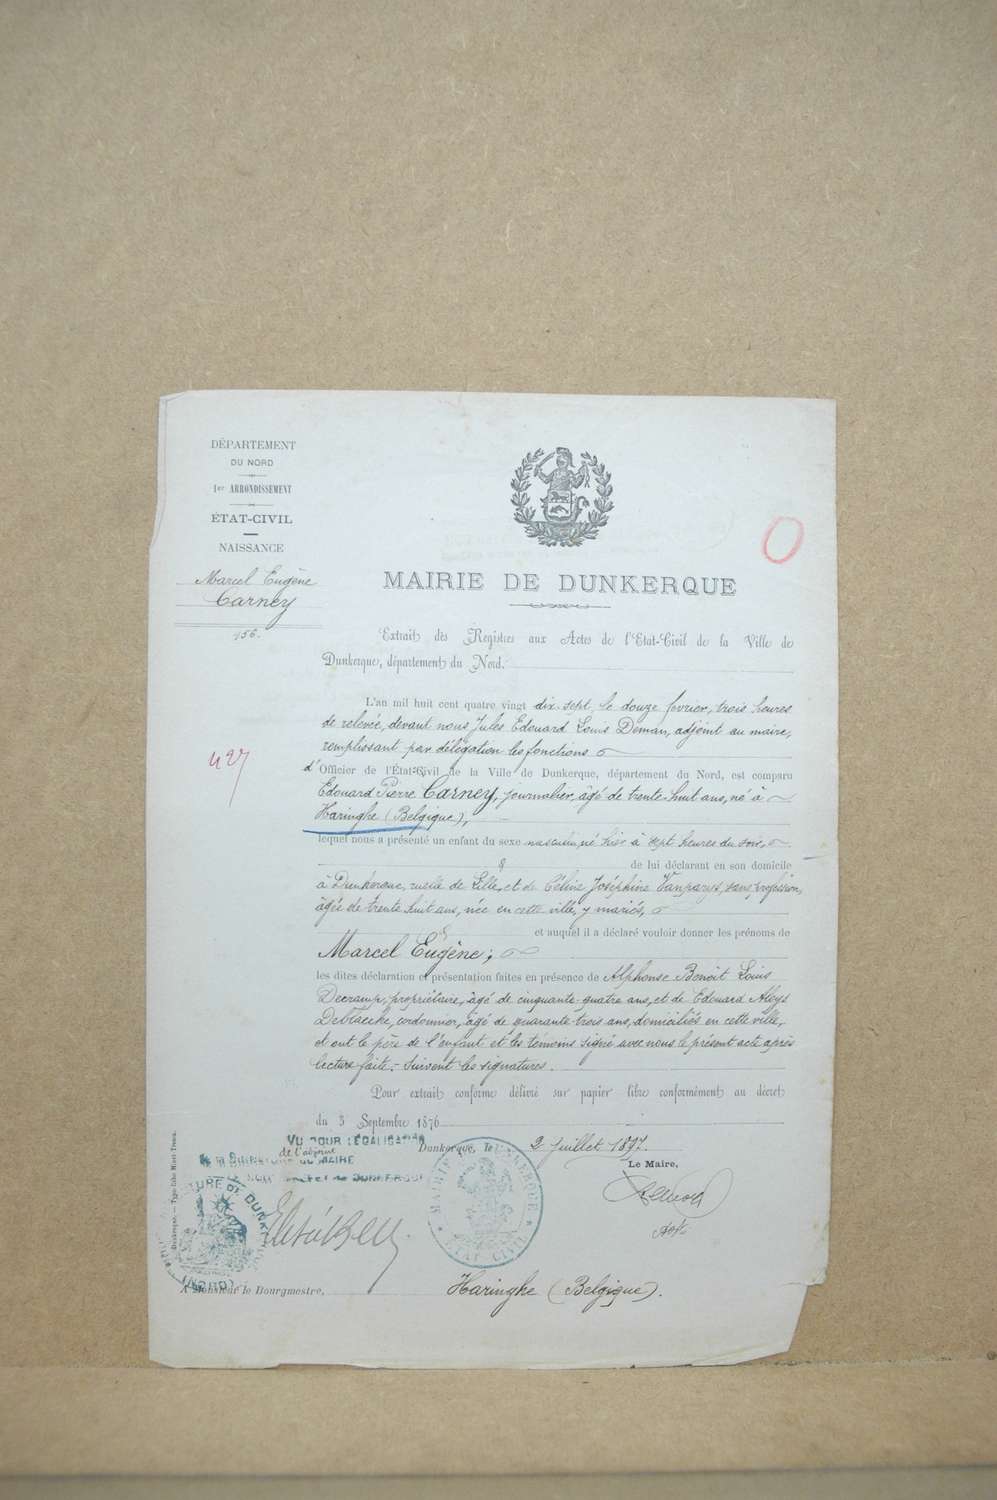 DÉPARTEMENT
DU NORD
1er ARRONDISSEMENT
ÉTAT-CIVIL
NAISSANCE
Marcel Eugène
Carney
156.
427
MAIRIE DE DUNKERQUE
Extrait des Registres aux Actes de l'Etat-Civil de la Ville de
Dunkerque, département du Nord.
L'an mil huit cent quatre vingt dix sept, le douze février, trois heures
de relevée, devant nous Jules Edouard Louis Deman, adjoint au maire,
remplissant par délégation les fonctions
d'Officier de l'État-Civil de la Ville de Dunkerque, département du Nord, est comparu
Edouard Pierre Carney, journalier, âgé de trente huit ans, né à
Haringhe (Belgique),
lequel nous a présenté un enfant du sexe masculin, né hier à sept heures du soir,
de lui déclarant en son domicile
à Dunkerque, ruelle de Lille, et de Céline Joséphine Vanparys, sans profession,
âgée de trente huit ans, née en cette ville, y mariés,
et auquel il a déclaré vouloir donner les prénoms de
Marcel Eugène;
les dites déclaration et présentation faites en présence de Alphonse Benoit Louis
Decramp, propriétaire, âgé de cinquante quatre ans, et de Edouard Aloys
Deblaecke, cordonnier, âgé de quarante trois ans, domiciliés en cette ville,
et ont le père de l'enfant et les témoins signé avec nous le présent acte après
lecture faite. - Suivent les signatures.
Pour extrait conforme délivré sur papier libre conformément au décret
du 3 Septembre 1876
Dunkerque, le 2 Juillet 1897.
Le Maire,
VU POUR LÉGALISATION
de l'adjoint
MAIRIE DE DUNKERQUE
ETAT CIVIL
SOUS-PRÉFECTURE DE DUNKERQUE
(NORD)
A Monsieur le Bourgmestre, Haringhe (Belgique).